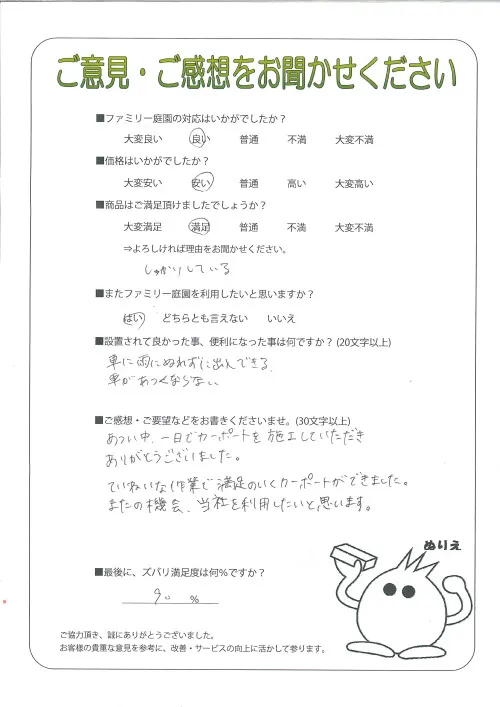 ご意見・ご感想をお聞かせください
■ファミリー庭園の対応はいかがでしたか？
大変良い 良い 普通 不満 大変不満
■価格はいかがでしたか？
大変安い 安い 普通 高い 大変高い
■商品はご満足頂けましたでしょうか？
大変満足 満足 普通 不満 大変不満
⇒よろしければ理由をお聞かせください。
しっかりしている
■またファミリー庭園を利用したいと思いますか？
はい どちらとも言えない いいえ
■設置されて良かった事、便利になった事は何ですか？(20文字以上)
車に雨にぬれずに出入できる
車があつくならない
■ご感想・ご要望などをお書きくださいませ。(30文字以上)
あつい中、一日でカーポートを施工していただき
ありがとうございました。
ていねいな作業で満足のいくカーポートができました。
またの機会、当社を利用したいと思います。
ぬりえ
■最後に、ズバリ満足度は何％ですか？
90 %
ご協力頂き、誠にありがとうございました。
お客様の貴重な意見を参考に、改善・サービスの向上に活かして参ります。